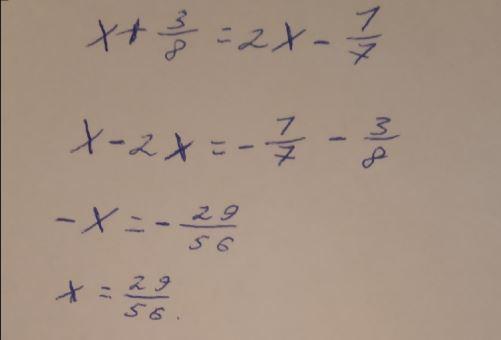 x + 3/8 = 2x - 1/7
x - 2x = - 1/7 - 3/8
-x = - 29/56
x = 29/56.